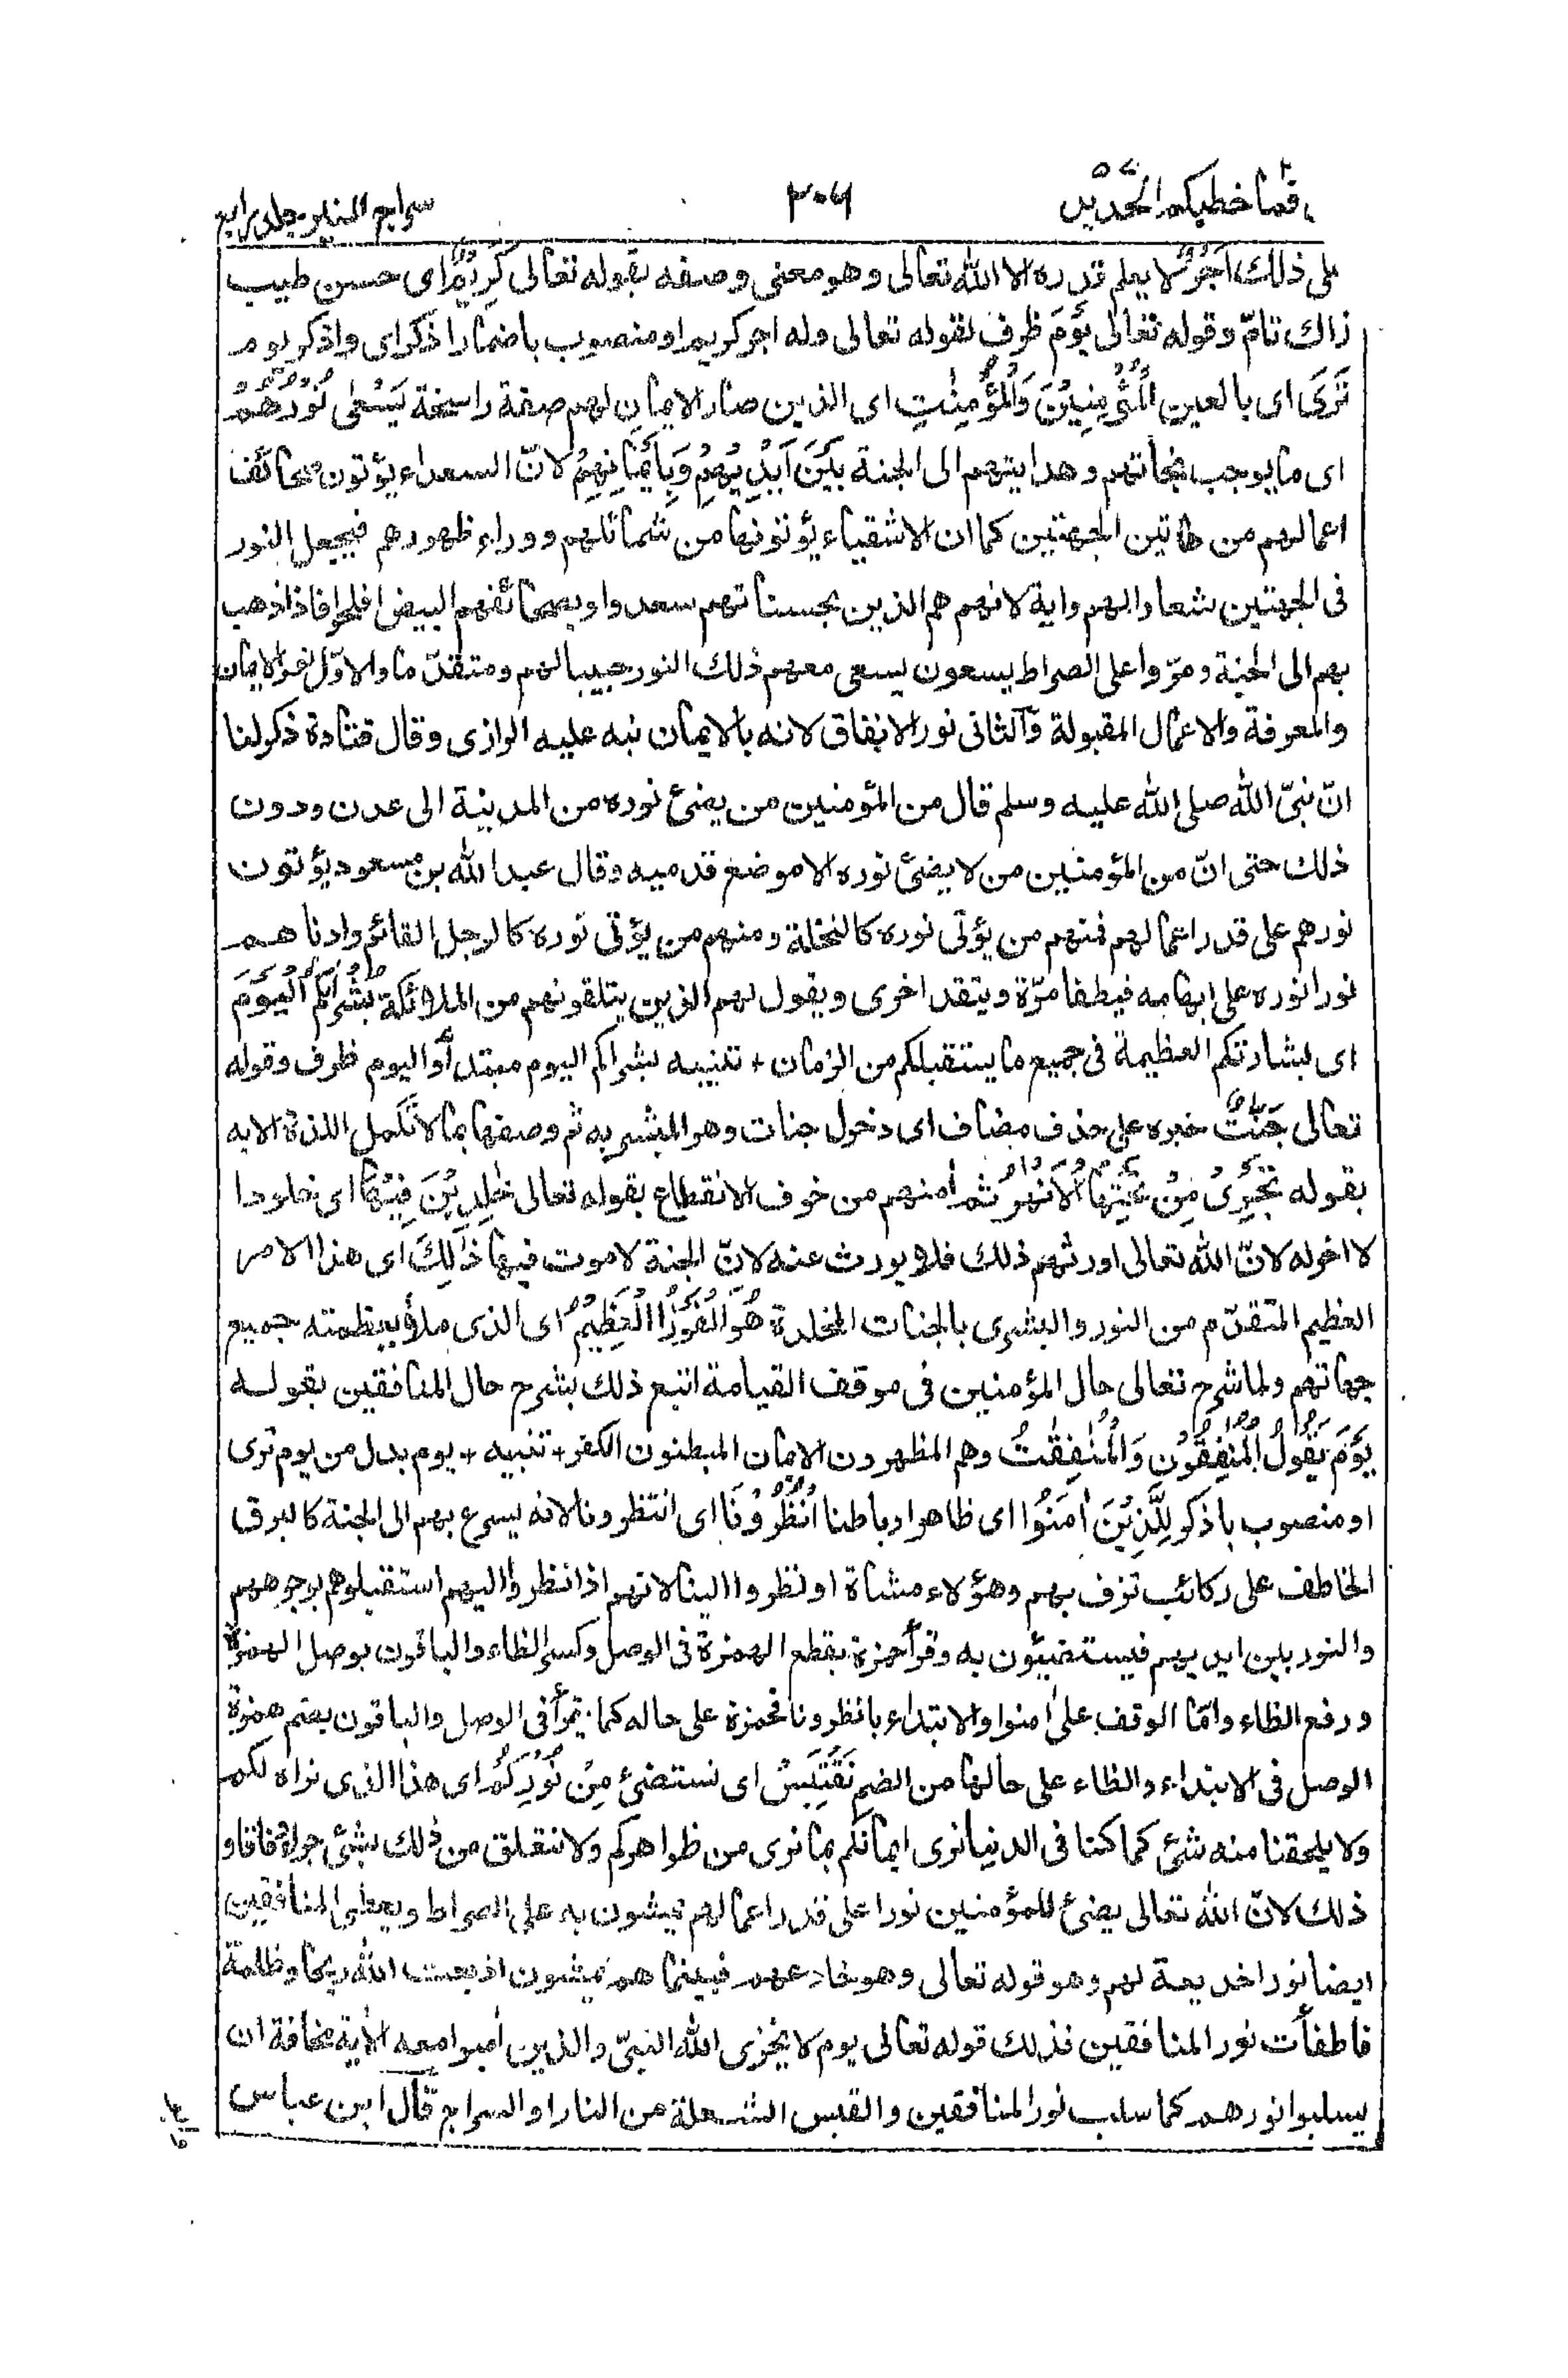 قما خطبكم الحديد ۵۷
۳۰۶
سراج المنير جلد رابع
على ذلك اَجْرٌ لا يعلم قدره الا الله تعالى وهو معنى وصفه بقوله تعالى كَرِيْمٌ اى حسن طيب
زاك تامّ وقوله تعالى يَوْمَ ظرف لقوله تعالى وله اجر كريم او منصوب باضمار اذكر اى واذكر يوم
تَرَى اى بالعين الْمُؤْمِنِيْنَ وَالْمُؤْمِنٰتِ اى الذين صار الايمان لهم صفة راسخة يَسْعٰى نُوْرُهُمْ
اى ما يوجب نجاتهم وهدايتهم الى الجنة بَيْنَ اَيْدِيْهِمْ وَبِاَيْمَانِهِمْ لانّ السعداء يؤتون صحائف
اعمالهم من هاتين الجهتين كما ان الاشقياء يؤتونها من شمائلهم ووراء ظهورهم فيجعل النور
فى الجهتين شعارا لهم واية لانهم هم الذين بحسناتهم سعدوا وبصحائفهم البيض افلحوا فاذا ذهب
بهم الى الجنة ومرّوا على الصراط يسعون يسعى معهم ذلك النور جنيبا لهم ومتقدّما والاوّل نور الايمان
والمعرفة والاعمال المقبولة وٓالثانى نور الانفاق لانه بالايمان نبه عليه الرازى وقال قتادة ذكر لنا
انّ نبىّ الله صلى الله عليه وسلم قال من المؤمنين من يضئ نوره من المدينة الى عدن ودون
ذلك حتى انّ من المؤمنين من لا يضئ نوره الا موضع قدميه وقال عبد الله بن مسعود يؤتون
نورهم على قدر اعمالهم فمنهم من يؤتى نوره كالنخلة ومنهم من يؤتى نوره كالرجل القائم وادناهم
نورا نوره على ابهامه فيطفأ مرّة ويتقد اخرى ويقول لهم الذين يتلقونهم من الملائكة بُشْرٰىكُمُ الْيَوْمَ
اى بشارتكم العظيمة فى جميع ما يستقبلكم من الزمان + تنبيه بشراكم اليوم مبتدأ واليوم ظرف وقوله
تعالى جَنّٰتٌ خبره على حذف مضاف اى دخول جنات وهو المبشر به ثم وصفها بما لا تكمل اللذة الا به
بقوله تَجْرِىْ مِنْ تَحْتِهَا الْاَنْهٰرُ ثم امنهم من خوف الانقطاع بقوله تعالى خٰلِدِيْنَ فِيْهَا اى خلودا
لا اخر له لانّ الله تعالى اورثهم ذلك فلا يورث عنه لانّ الجنة لا موت فيها ذٰلِكَ اى هذا الامر
العظيم المتقدّم من النور والبشرى بالجنات المخلدة هُوَ الْفَوْزُ الْعَظِيْمُ اى الذى ملأ بعظمته جميع
جهاتهم ولما شرح تعالى حال المؤمنين فى موقف القيامة اتبع ذلك بشرح حال المنافقين بقوله
يَوْمَ يَقُوْلُ الْمُنٰفِقُوْنَ وَالْمُنٰفِقٰتُ وهم المظهرون الايمان المبطنون الكفر + تنبيه + يوم بدل من يوم ترى
او منصوب باذكر لِلَّذِيْنَ اٰمَنُوْا اى ظاهرا وباطنا انْظُرُوْنَا اى انتظرونا لانه يسرع بهم الى الجنة كالبرق
الخاطف على ركائب تزف بهم وهؤلاء مشاة او نظروا الينا لانهم اذا نظروا اليهم استقبلوهم بوجوههم
والنور بين ايديهم فيستضيؤن به وقرأ حمزة بقطع الهمزة فى الوصل وكسر الظاء والباقون بوصل الهمزة
ورفع الظاء وامّا الوقف على اٰمنوا والابتداء بانظرونا فحمزة على حاله كما يقرأ فى الوصل والباقون بضم همزة
الوصل فى الابتداء والظاء على حالها من الضم نَقْتَبِسْ اى نستضئ مِنْ نُوْرِكُمْ اى هذا الذى نراه لكم
ولا يلحقنا منه شئ كما كنا فى الدنيا نرى ايمانكم بما نرى من ظواهركم ولا نتعلق من ذلك بشئ جزاء وفاقا و
ذلك لانّ الله تعالى يضئ للمؤمنين نورا على قدر اعمالهم يمشون به على الصراط ويعطى المنافقين
ايضا نورا خديعة لهم وهو قوله تعالى وهو خادعهم فبينما هم يمشون اذ بعث الله ريحا وظلمة
فاطفأت نور المنافقين فذلك قوله تعالى يوم لا يخزى الله النبىّ والذين اٰمنوا معه الاٰية مخافة ان
يسلبوا نورهم كما سلب نور المنافقين والقبس الشعلة من النار او السراج قٓال ابن عباس